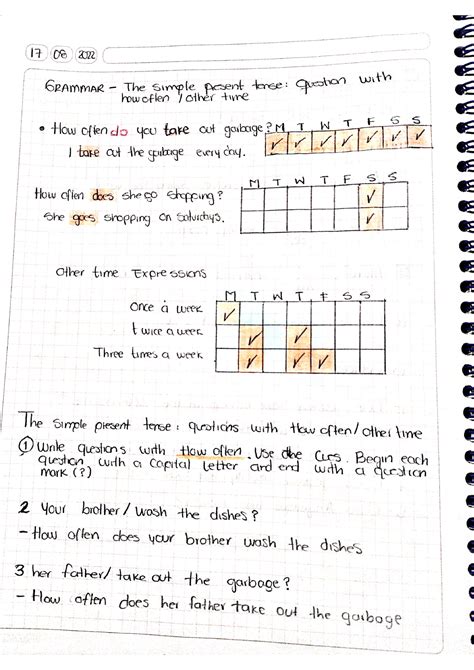 17 08 2022
GRAMMAR - The simple present tense: Question with
how often / other time
• How often do you take out garbage? M T W T F S S
I take out the garbage every day. ✓ ✓ ✓ ✓ ✓ ✓ ✓
M T W T F S S
How often does she go shopping? ✓
She goes shopping on Saturdays. ✓
Other time Expressions
M T W T F S S
Once a week ✓
twice a week ✓ ✓
Three times a week ✓ ✓ ✓
The simple present tense: questions with How often/other time
① Write questions with How often. Use the Cues. Begin each
question with a capital letter and end with a question
mark (?)
2 Your brother / wash the dishes?
- How often does your brother wash the dishes
3 her father/ take out the garbage?
- How often does her father take out the garbage